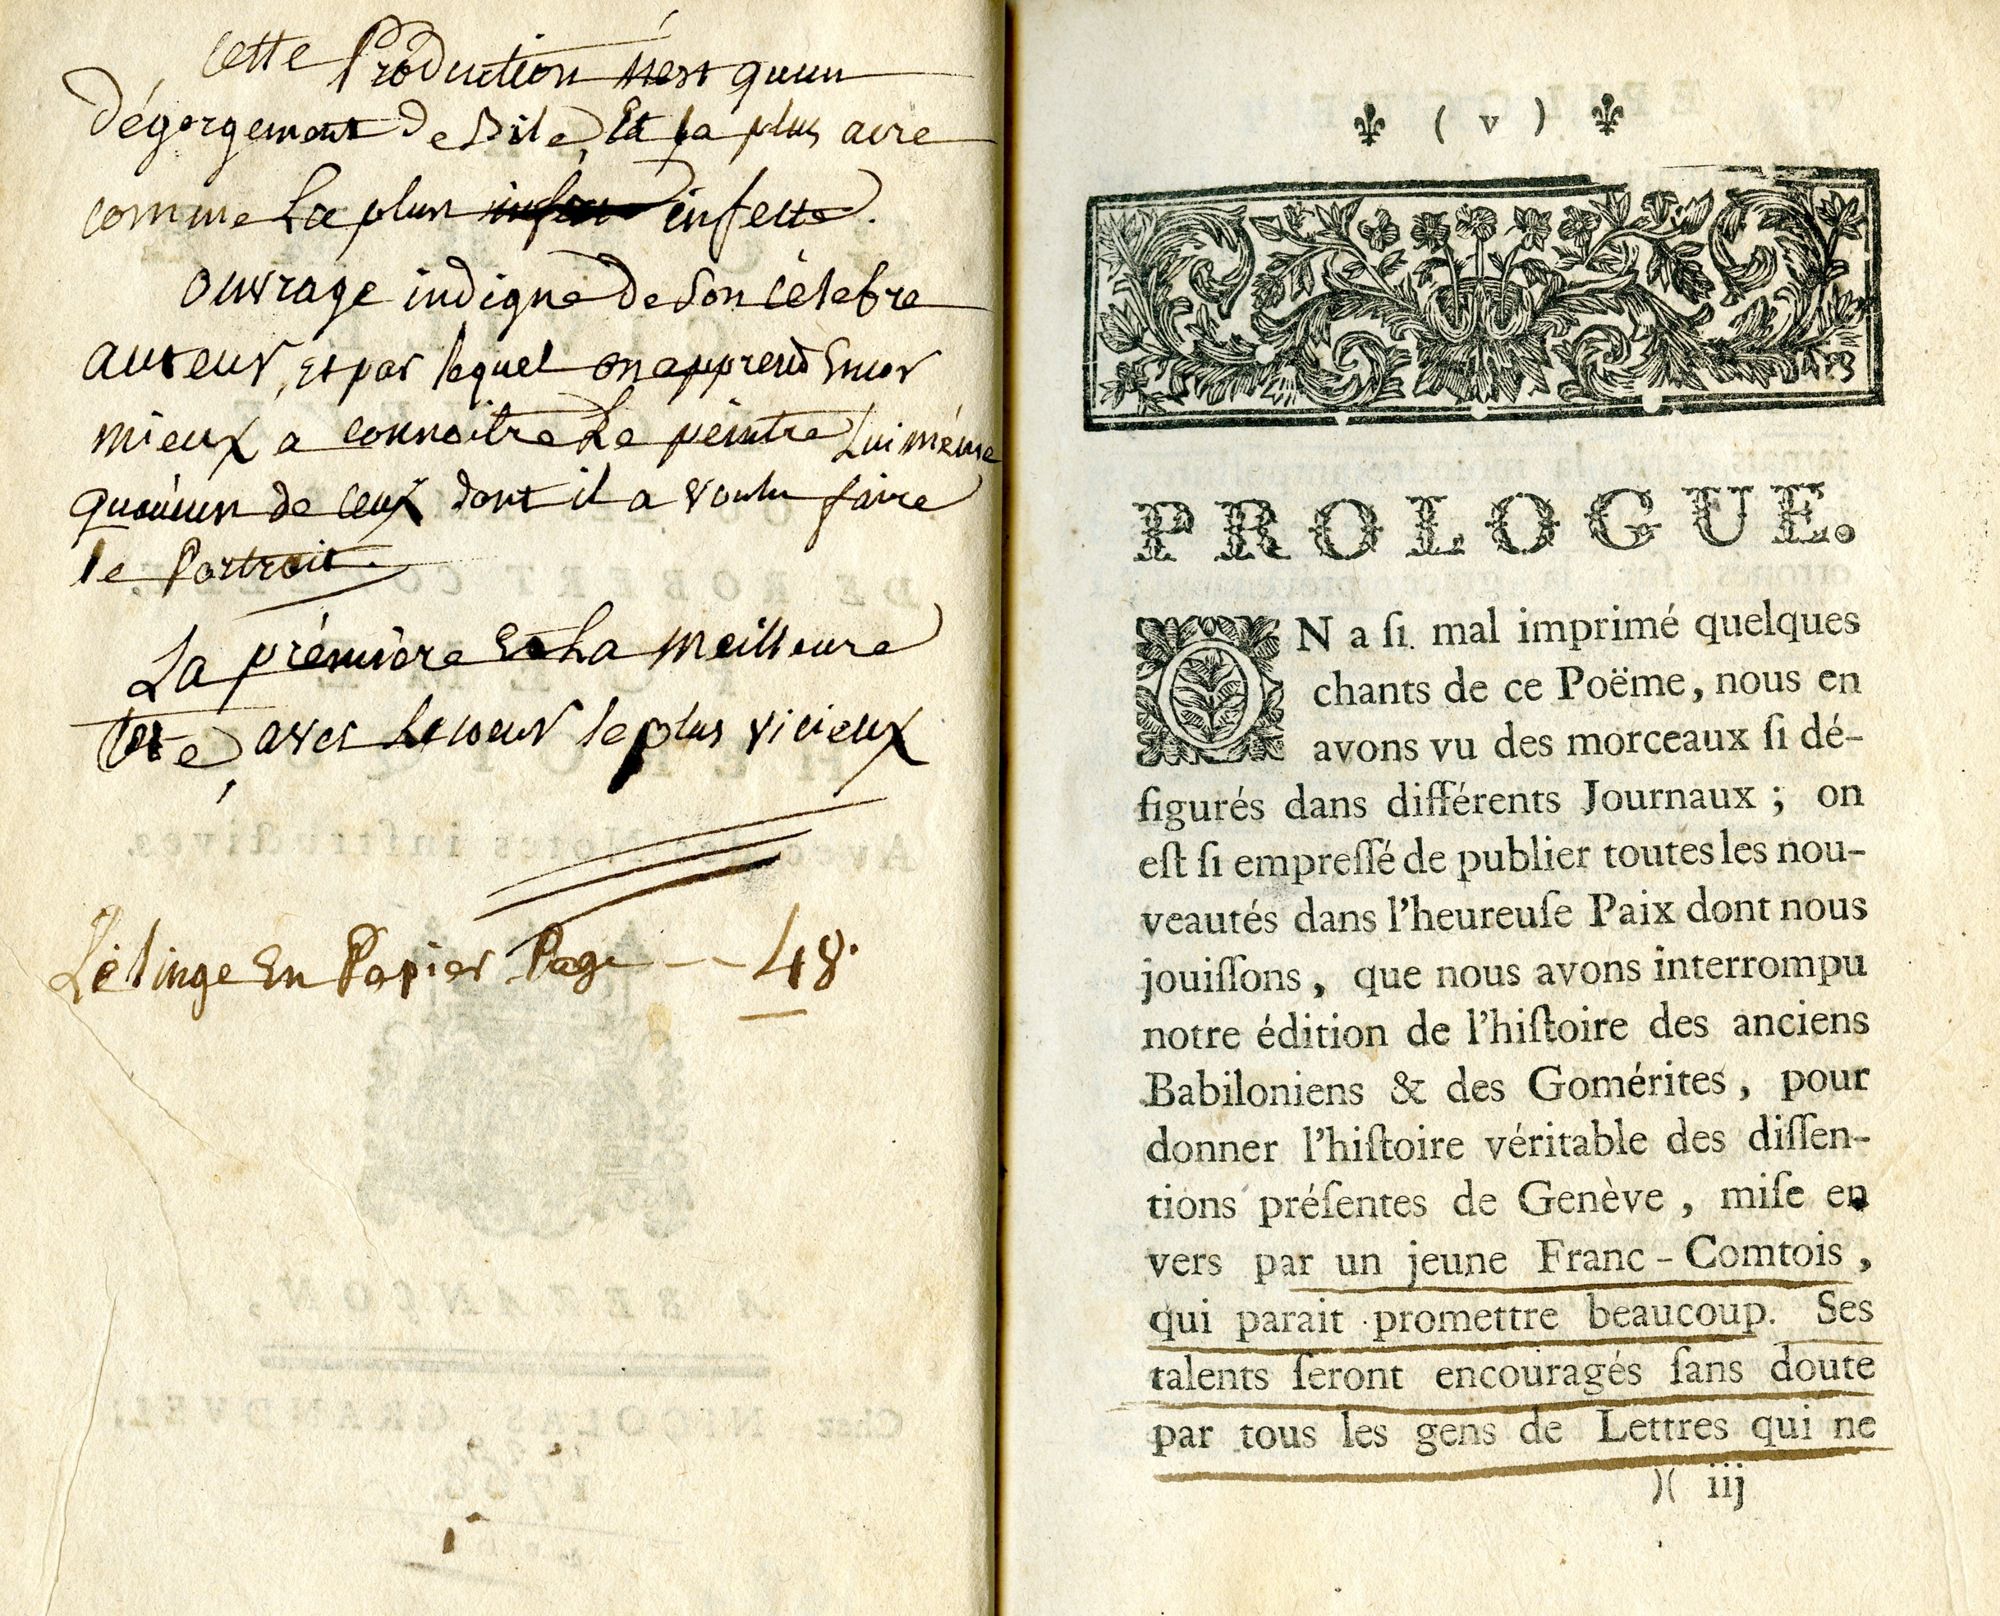 Cette Production n'est qu'un
dégorgement de Bile, Et la plus acre
comme La plus infecte.
Ouvrage indigne de Son Célebre
auteur, Et par lequel on apprend Encor
mieux a connoitre Le peintre Lui même
qu'aucun de ceux dont il a voulu faire
le Portrait.
La première Et La Meilleure
tête, avec Le coeur le plus vicieux
Le linge En Papier Page -- 48.
( v )
PROLOGUE.
ON a ſi mal imprimé quelques
chants de ce Poëme, nous en
avons vu des morceaux ſi dé-
figurés dans différents Journaux ; on
eſt ſi empreſſé de publier toutes les nou-
veautés dans l'heureuſe Paix dont nous
jouiſſons, que nous avons interrompu
notre édition de l'hiſtoire des anciens
Babiloniens & des Gomérites, pour
donner l'hiſtoire véritable des diſſen-
tions préſentes de Genève, miſe en
vers par un jeune Franc-Comtois,
qui parait promettre beaucoup. Ses
talents ſeront encouragés ſans doute
par tous les gens de Lettres qui ne
)( iij